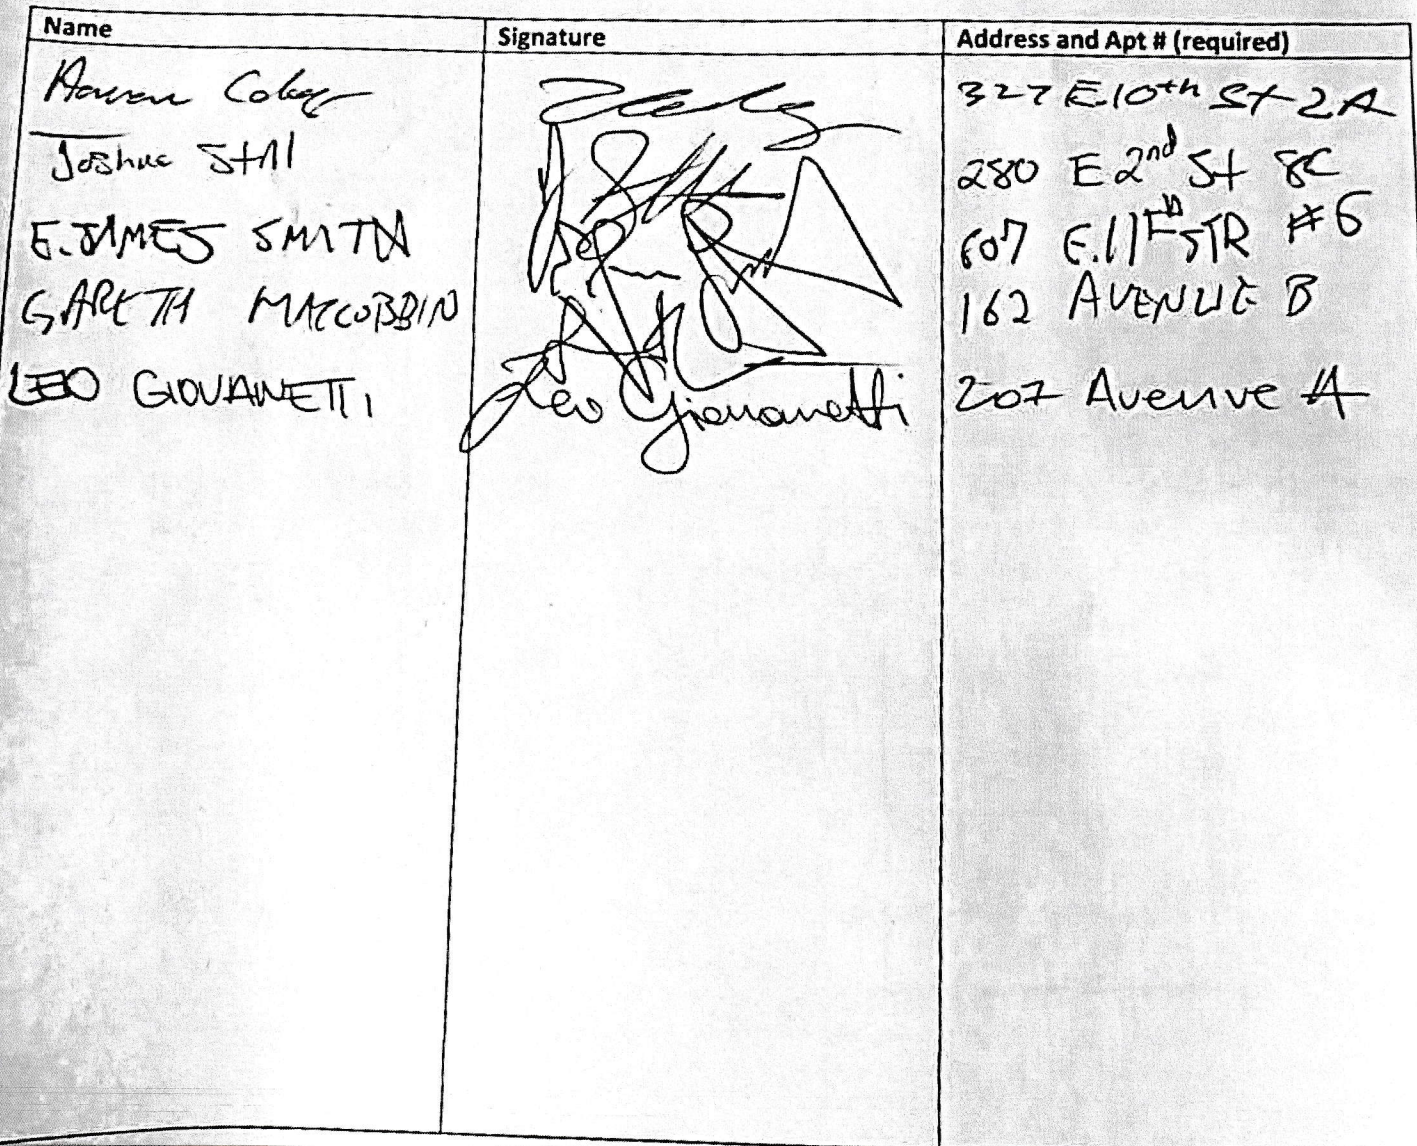 Name Signature Address and Apt # (required)
Aaron 327 E.10th St 2A
Joshua Still 280 E 2nd St 8C
E. JAMES SMITH 607 E.11th STR #6
GARETH MACCOBBIN 162 AVENUE B
LEO GIOVANETTI Leo Giovanetti 207 Avenue A